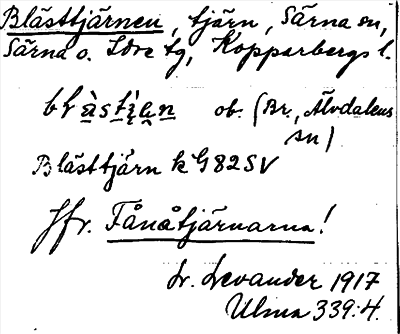 Blästtjärnen, tjärn, Särna sn,
Särna o. Idre tg, Kopparbergs l.
ob. (Br., Älvdalens
sn)
Blästtjärn k G82SV
Jfr. Fånåtjärnarna!
L. Levander 1917
Ulma 339:4.